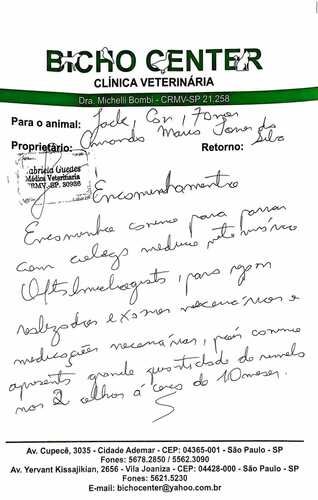 BICHO CENTER
CLÍNICA VETERINÁRIA
Dra. Michelli Bombi - CRMV-SP 21.258
Para o animal: Jack, Cor,
Proprietário: Mario da Silva
Retorno:
abriela Guedes
Médica Veterinária
CRMV-SP. 30926
Encaminhamento
Encaminho canino para passar
com colega médico veterinário
Oftalmologista, para sejam
realizados exames necessários e
medicações necessárias, pois canino
apresenta grande quantidade de remela
nos 2 olhos a cerca de 10 meses.
Av. Cupecê, 3035 - Cidade Ademar - CEP: 04365-001 - São Paulo - SP
Fones: 5678.2850 / 5562.3090
Av. Yervant Kissajikian, 2656 - Vila Joaniza - CEP: 04428-000 - São Paulo - SP
Fones: 5621.5230
E-mail: bichocenter@yahoo.com.br